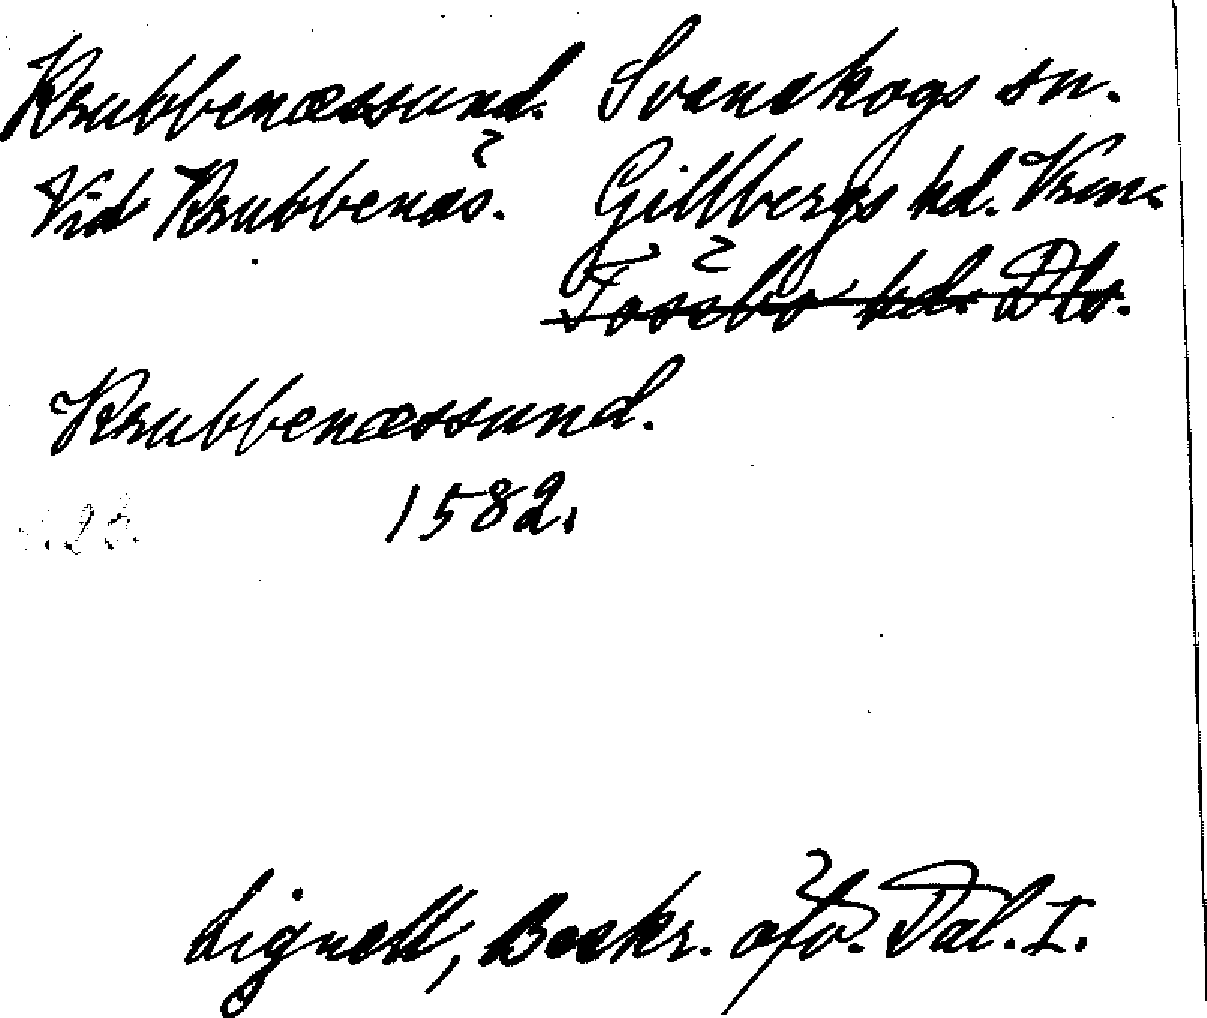 Krubbenæssund. Svanskogs sn.
Vid Krubbenäs. Gillbergs hd. Vrm.
Tössbo hd. Dls.
Krubbenæssund.
1582.
Lignell, Beskr. öfv. Dal. I.